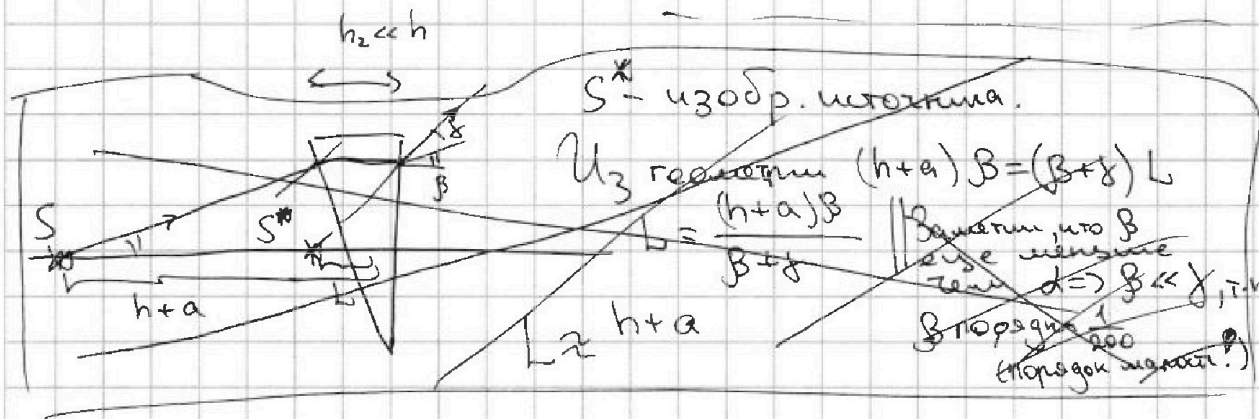 h₂ << h
S* - изобр. источника.
Из геометрии (h+a)β = (β+γ) L
L = (h+a)β / (β+γ)
Заметим, что β
еще меньше
чем α => β << γ, т.к.
β порядка 1/200
(порядок малости?)
L ≈ h+a
γ
β
S
S*
L
h+a